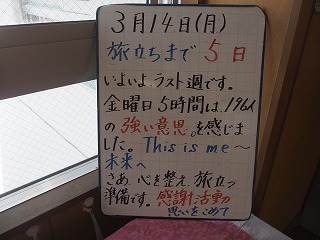 3月14日(月)
旅立ちまで 5日
いよいよ ラスト週です。
金曜日5時間は、196人
の 強い意思 を感じま
した。This is me〜
未来へ
さあ、心を整え、旅立つ
準備です。感謝活動
思いをこめて